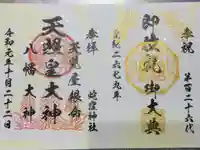 奉祝
第百二十六代
即位礼御大典
皇紀二六七九年
奉拝
天児屋根命
蛟窪神社
天照皇大神
八幡大神
令和元年十月二十二日